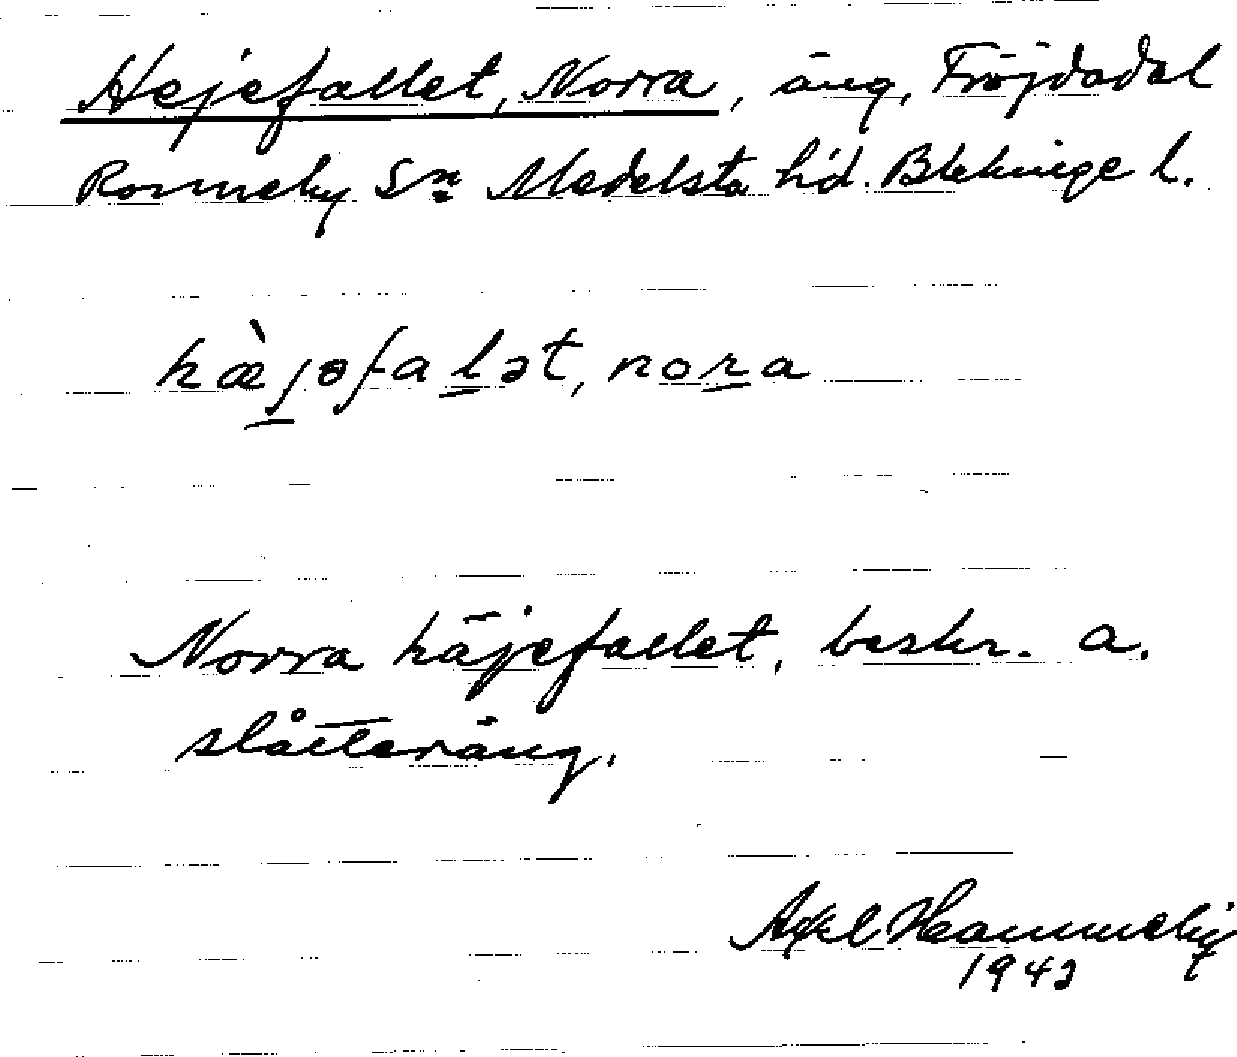 Hejefallet, Norra, äng, Fröjdadal
Ronneby Sn Medelsta hd. Blekinge l.
hæ̀jɵfalət, nora
Norra häjefallet, beskr. a.
slåtteräng.
Axel Hammelig
1942